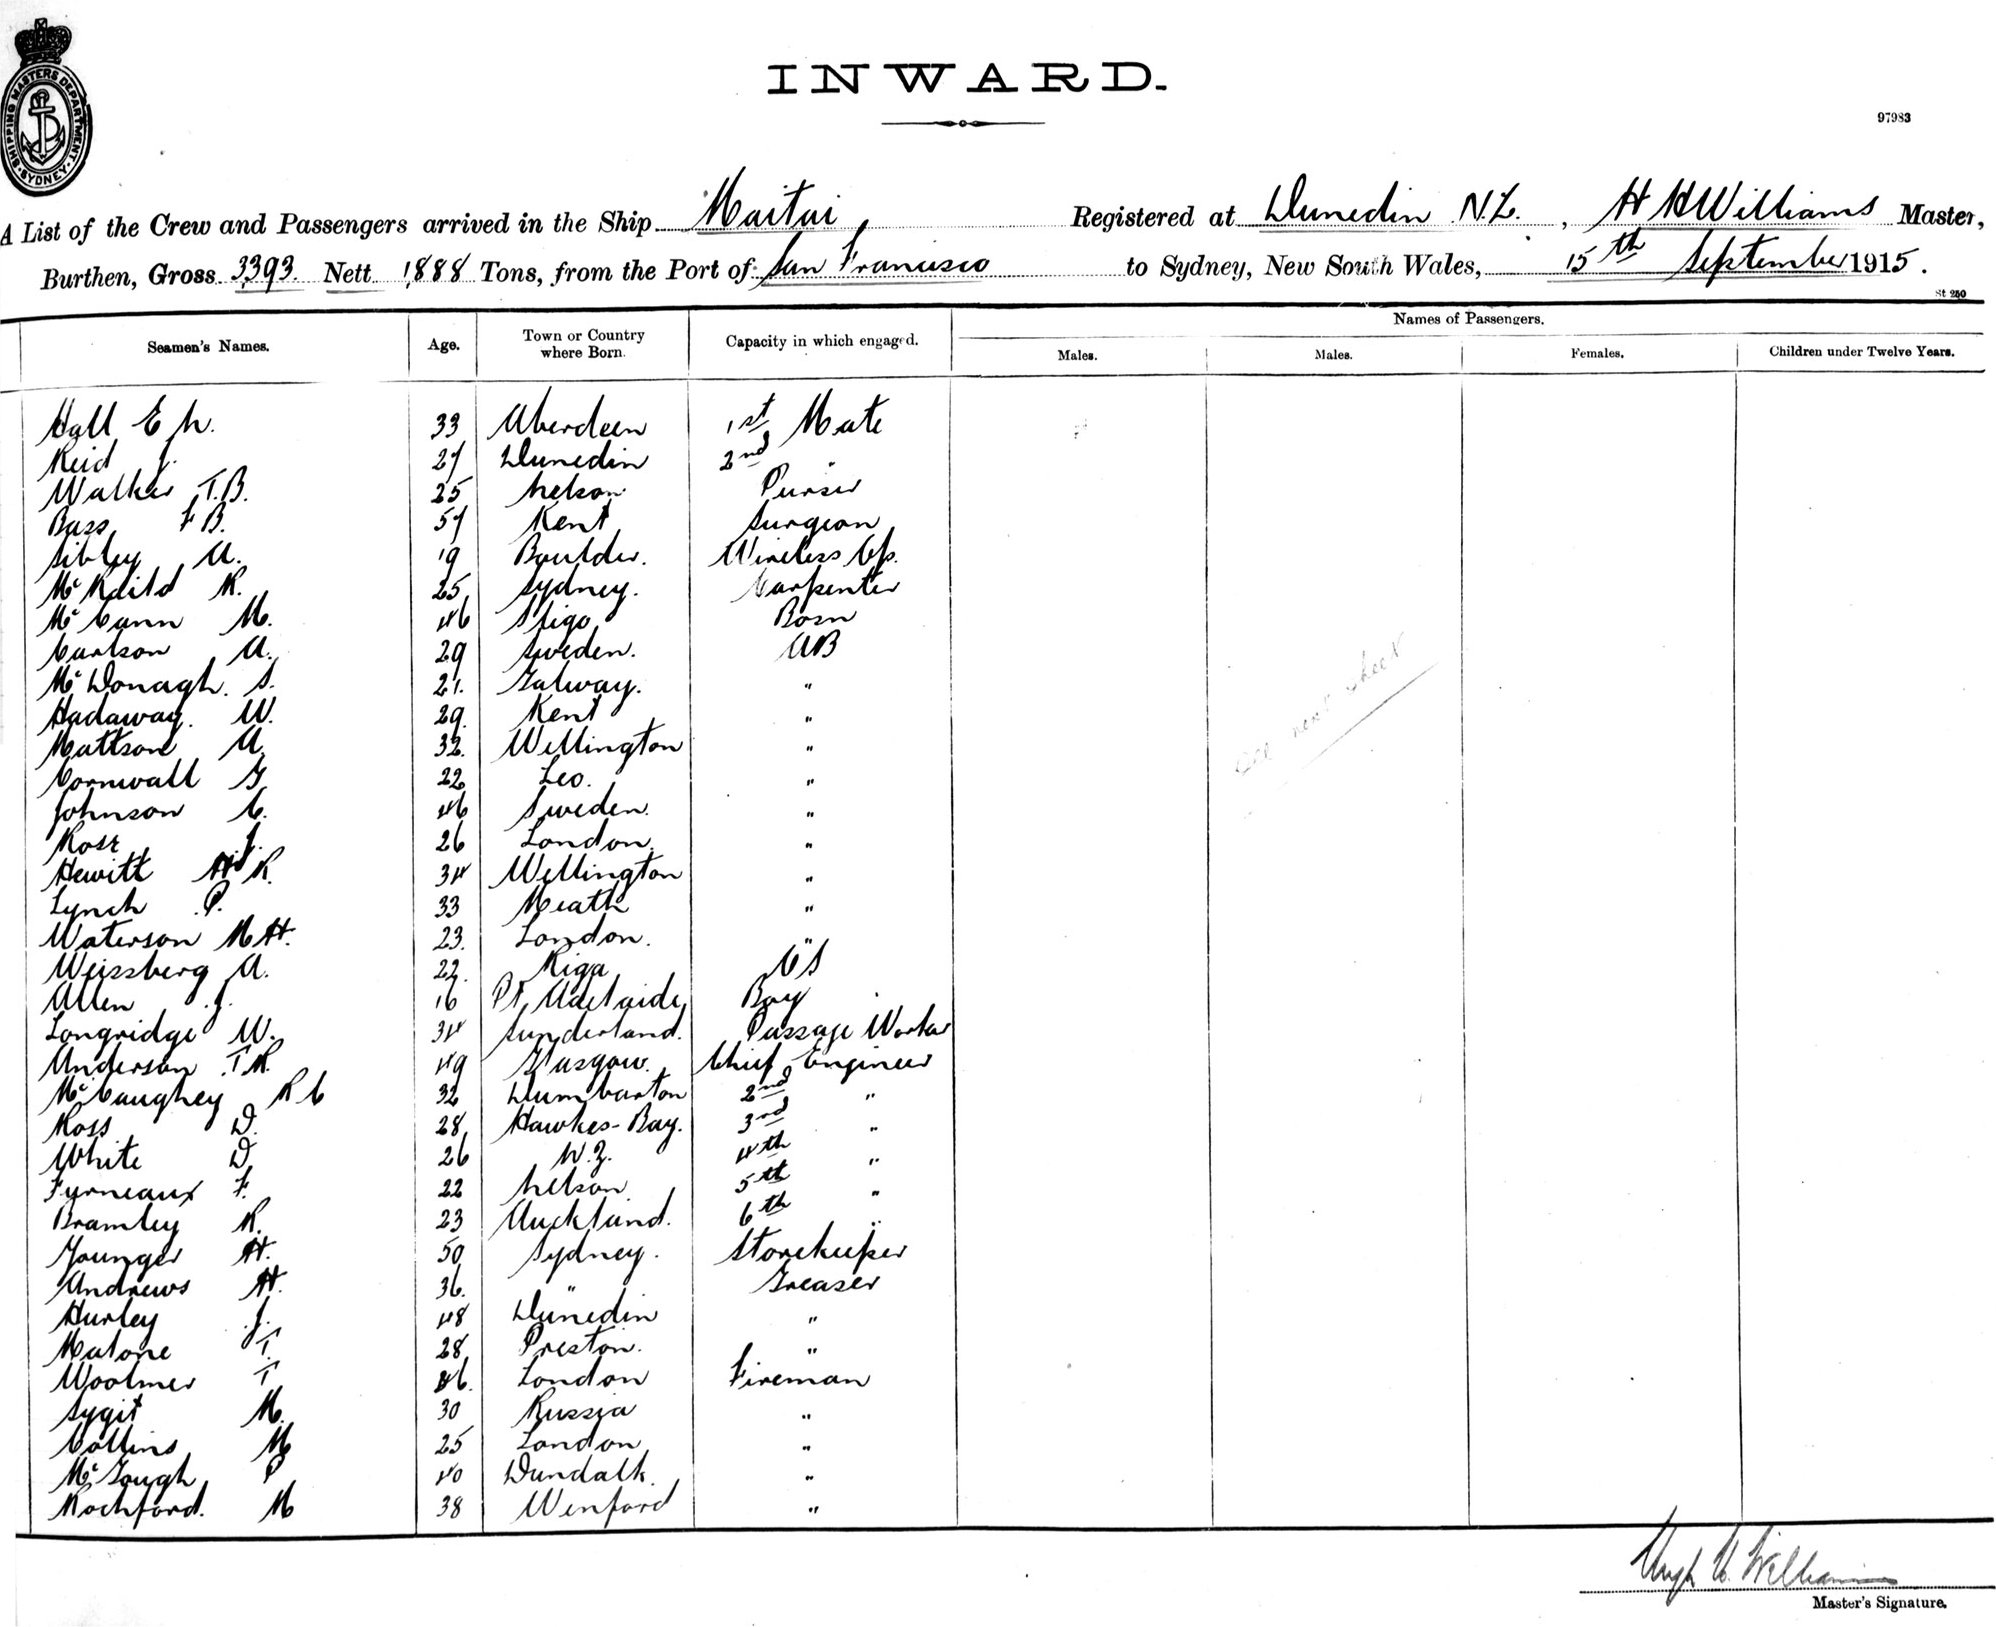 SHIPPING MASTERS DEPARTMENT · SYDNEY ·
INWARD.
97983
A List of the Crew and Passengers arrived in the Ship Maitai Registered at Dunedin N.Z. , H H Williams Master,
Burthen, Gross 3393. Nett 1888 Tons, from the Port of San Francisco to Sydney, New South Wales, 15th September 1915.
St 250
Seamen's Names. Age. Town or Country where Born. Capacity in which engaged. Names of Passengers.
Males. Males. Females. Children under Twelve Years.
Hall E 33 Aberdeen 1st Mate
Reid J. 27 Dunedin 2nd "
Walker T.B. 25 Nelson Purser
Bass F B. 57 Kent Surgeon
Sibley A. 19 Boulder. Wireless Op.
R. 25 Sydney. Carpenter
McCann M. 46 Sligo Bosn
Carlson A. 29 Sweden. AB
McDonagh. S. 21. Galway. "
Hadaway. W. 29. Kent "
Mattson A. 32. Wellington "
Cornwall G 22 Leo. "
Johnson C. 46 Sweden. "
Ross J. 26 London. "
Hewitt R. 34 Wellington "
Lynch P. 33 Meath "
Waterson M H. 23. London. "
Weissberg A. 22. Riga OS
Allen J. 16 Pt. Adelaide Boy
Longridge W. 34 Sunderland. Passage Worker
Anderson T.R. 49 Glasgow. Chief Engineer
McCaughey R C 32 Dumbarton 2nd "
Ross D. 28 Hawkes-Bay. 3rd "
White D 26 N.Z. 4th "
Furneaux F. 22 Nelson 5th "
Bramley R. 23 Auckland. 6th "
Younger H. 50 Sydney. Storekeeper
Andrews H. 36. " Greaser
Hurley J. 48 Dunedin "
Malone T. 28 Preston. "
Woolmer T 46. London Fireman
Sygit M. 30 Russia "
Collins M 25 London "
McGough P 40 Dundalk. "
Rochford. M 38 Wexford "
See next sheet
Hugh H. Williams
Master's Signature.